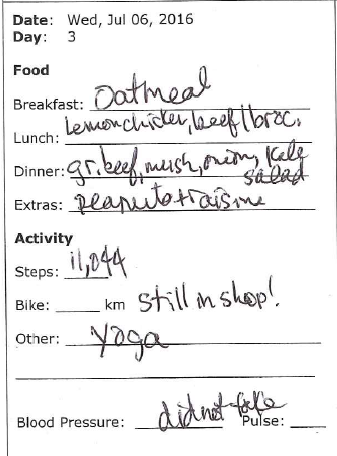 Date: Wed, Jul 06, 2016
Day: 3
Food
Breakfast: Oatmeal
Lunch: Lemon chicken, beef/broc.
Dinner: gr. beef, mush, onion, kale
salad
Extras: peanuts + raisins
Activity
Steps: 11,044
Bike: ____ km still in shop!
Other: Yoga
Blood Pressure: did not take Pulse: ____